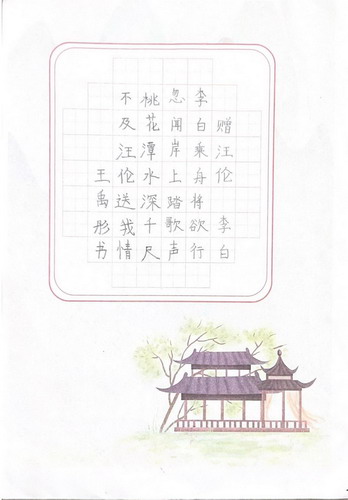 赠汪伦 李白
李白乘舟将欲行
忽闻岸上踏歌声
桃花潭水深千尺
不及汪伦送我情
王禹彤书